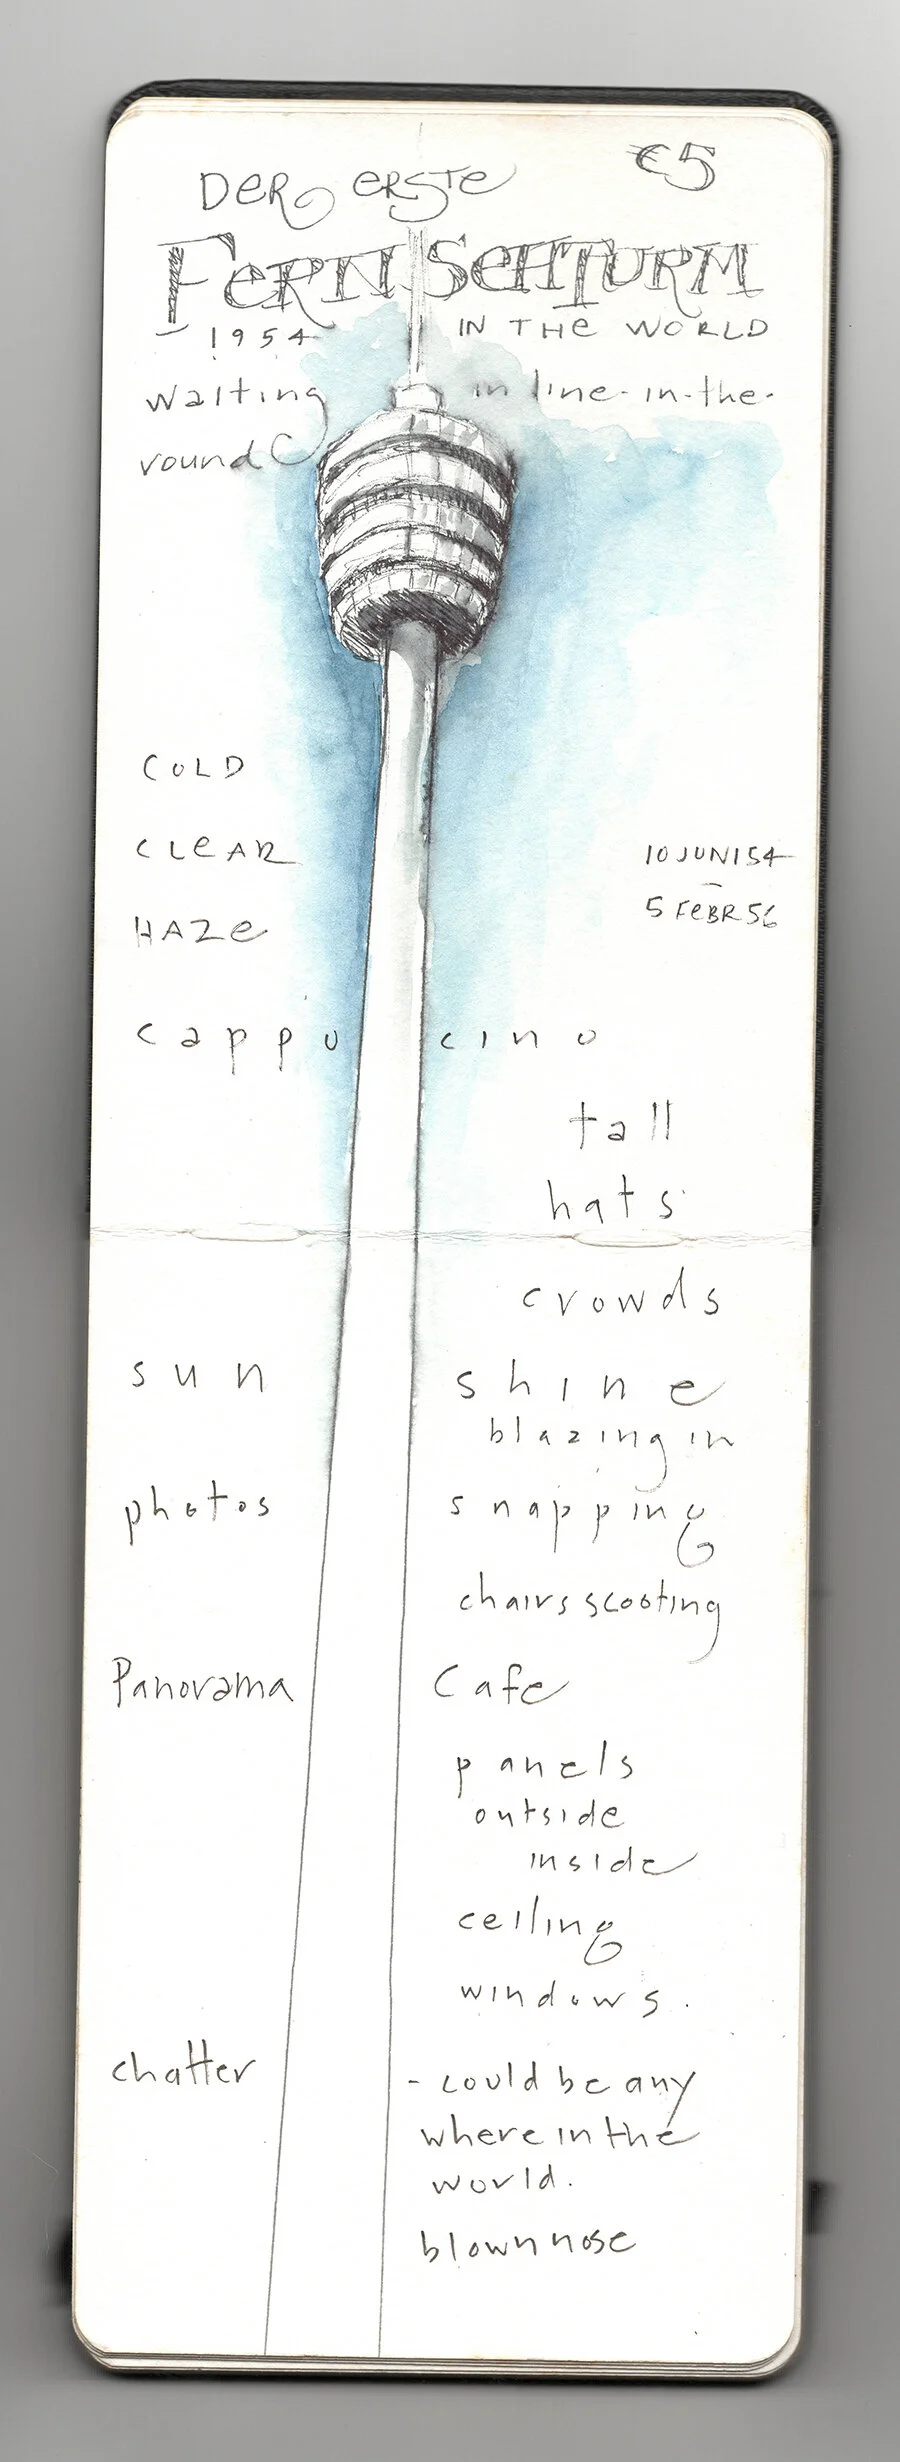 DER ERSTE €5
FERNSEHTURM
1954 IN THE WORLD
waiting in line-in-the-
round
COLD
CLEAR
10 JUNI 54
HAZE
–
5 FEBR 56
cappucino
tall
hats
crowds
sun shine
blazing in
photos snapping
chairs scooting
Panorama Cafe
panels
outside
inside
ceiling
windows.
chatter - could be any
where in the
world.
blown nose